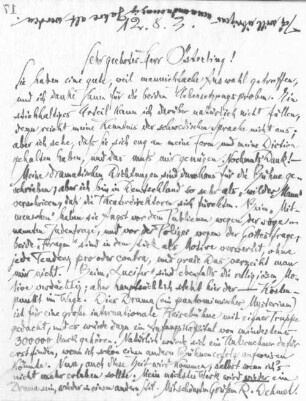 17
Ich will übrigens
unanonym 7 Jahre alt werden.
5. 8. 12
Sehr geehrter Herr Österling!
Sie haben eine gute, weil mannichfache Auswahl getroffen,
und ich danke Ihnen für die beiden Uebersetzungsproben. Ein
stichhaltiges Urteil kann ich darüber natürlich nicht fällen,
denn reicht meine Kenntnis der schwedischen Sprache nicht aus,
aber ich sehe, daß sie sich eng an meine Form und meine Diction
gehalten haben, und das muß mir genügen. Nochmals Dank!
Meine dramatischen Dichtungen sind durchaus für die Bühne ge-
schrieben; aber ich bin in Deutschland so sehr als „wilder Mann"
verschrieen, daß die Theaterdirektoren sich fürchten. Beim „Mit-
menschen" haben sie Angst vor dem Publikum wegen der sogen
nannten Judenfrage, und vor der Polizei wegen der Gottesfrage;
beide „Fragen" sind in dem Stück als Motive verwendet, ohne
jede Tendenz pro oder contra, und grade das verzeiht man
mir nicht! Beim „Lucifer" sind ebenfalls die religiösen Mo-
tive verdächtig; aber hauptsächlich steht hier der Kosten-
punkt im Wege. Dies Drama (ein pantomimisches Mysterium)
ist für eine große internationale Reisebühne mit eigner Truppe
gedacht, und es würde dazu ein Anfangskapital von mindestens
300 000 Mark gehören. Natürlich würde sich ein Unternehmer dafür
erst finden, wenn ich schon einen andern Bühnenerfolg aufzuweisen
hätte. Nun, auch diese Zeit wird kommen, selbst wenn ich's
nicht mehr erleben sollte. Mein nächstes Werk wird wieder ein
Drama sein, wieder in einem andern Stil. Mit schönsten Grüßen R. Dehmel.